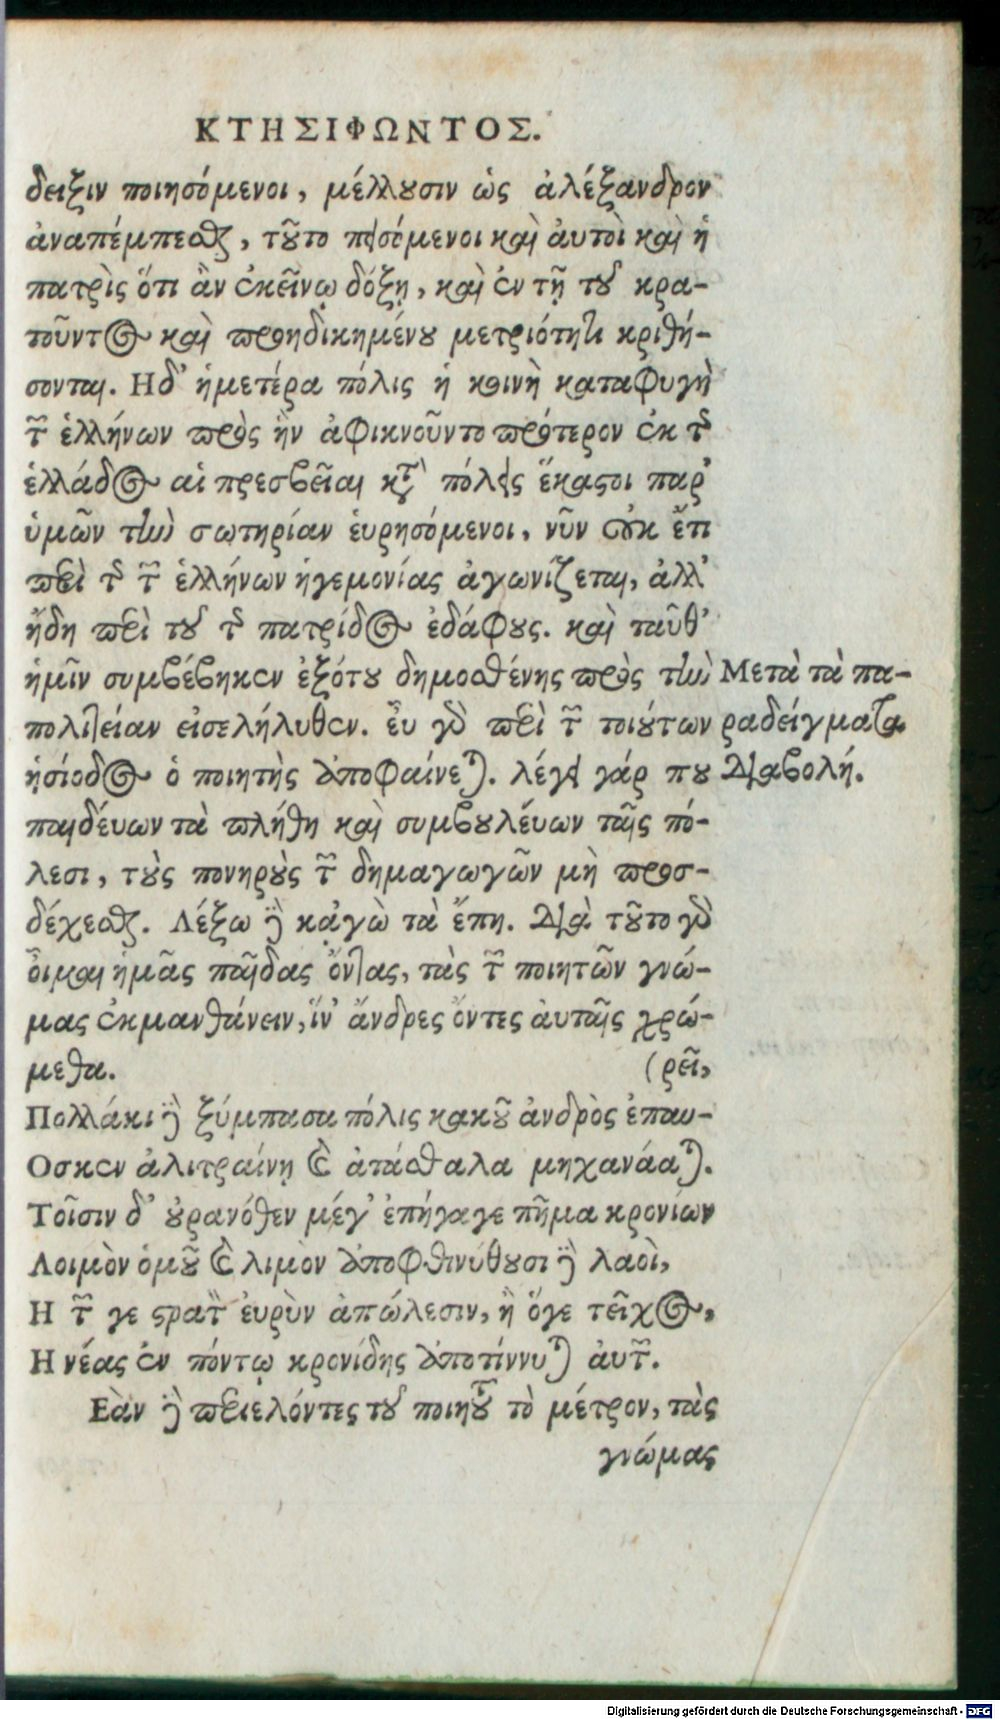 ΚΤΗΣΙΦΩΝΤΟΣ.
δειξιν ποιησόμενοι, μέλλουσιν ὡς ἀλέξανδρον
ἀναπέμπεσθαι, τοῦτο πεισόμενοι καὶ ἀυτοὶ καὶ ἡ
πατρὶς ὅτι ἂν ἐκεῖνῳ δόξῃ, καὶ ἐν τῇ τοῦ κρα-
τοῦντος καὶ προηδικημένου μετριότητι κριθή-
σονται. Ηδ' ἡμετέρα πόλις ἡ κοινὴ καταφυγὴ
τῶν ἑλλήνων πρὸς ἣν ἀφικνοῦντο πρότερον ἐκ τῆς
ἑλλάδος αἱ πρεσβεῖαι κατὰ πόλεις ἕκαστοι παρ'
ὑμῶν τὴν σωτηρίαν ἑυρησόμενοι, νῦν οὐκ ἔτι
περὶ τῆς τῶν ἑλλήνων ἡγεμονίας ἀγωνίζεται, ἀλλ'
ἤδη περὶ τοῦ τῆς πατρίδος ἐδάφους. καὶ ταῦθ'
ἡμῖν συμβέβηκεν ἐξότου δημοσθένης πρὸς τὴν
πολιτείαν εἰσελήλυθεν. ἔυ γὰρ περὶ τῶν τοιούτων
ἡσίοδος ὁ ποιητὴς ἀποφαίνεται. λέγει γάρ που
παιδέυων τὰ πλήθη καὶ συμβουλέυων ταῖς πό-
λεσι, τοὺς πονηροὺς τῶν δημαγωγῶν μὴ προσ-
δέχεσθαι. Λέξω δὲ κᾀγὼ τὰ ἔπη. Διὰ τοῦτο γὰρ
ὄιμαι ἡμᾶς παῖδας ὄντας, τὰς τῶν ποιητῶν γνώ-
μας ἐκμανθάνειν, ἵν' ἄνδρες ὄντες ἀυταῖς χρώ-
μεθα. (ρεῖ,
Πολλάκι δὲ ξύμπασα πόλις κακοῦ ἀνδρὸς ἐπαυ-
Οσκεν ἀλιτραίνῃ καὶ ἀτάσθαλα μηχανάαται.
Τοῖσιν δ' οὐρανόθεν μέγ' ἐπήγαγε πῆμα κρονίων
Λοιμὸν ὁμοῦ καὶ λιμὸν ἀποφθινύθουσι δὲ λαοὶ,
Η τῶν γε στρατὸν ἐυρὺν ἀπώλεσιν, ἢ ὅγε τεῖχος,
Η νέας ἐν πόντῳ κρονίδης ἀποτίννυται ἀυτῶν.
Εὰν δὲ περιελόντες τοῦ ποιητοῦ τὸ μέτρον, τὰς
γνώμας
Μετὰ τὰ πα-
ραδείγματα
Διαβολή.
Digitalisierung gefördert durch die Deutsche Forschungsgemeinschaft - DFG